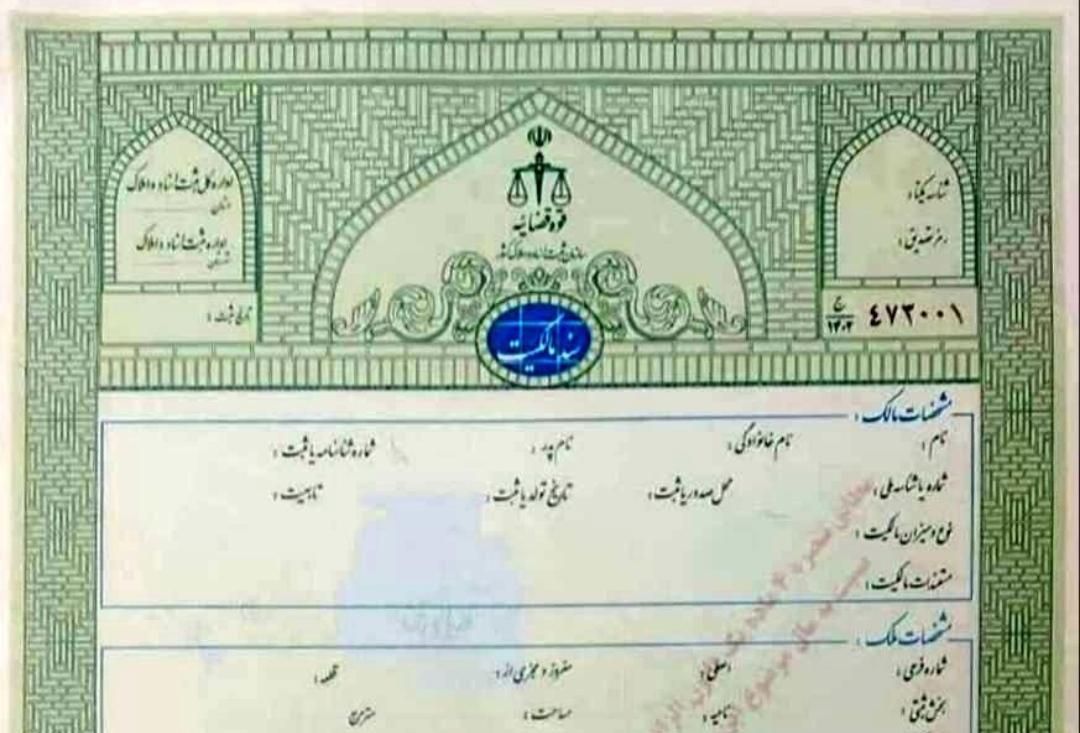 قوه قضائیه
سازمان ثبت اسناد و املاک کشور
شناسه یکتا :
رمز تصدیق :
ج
۱۴۰۲
۴۷۳۰۰۱
اداره کل ثبت اسناد و املاک
استان
اداره ثبت اسناد و املاک
شهرستان
تاریخ ثبت :
سند مالکیت
مشخصات مالک :
نام : نام خانوادگی : نام پدر : شماره شناسنامه یا ثبت :
شماره یا شناسه ملی : محل صدور یا ثبت : تاریخ تولد یا ثبت : تابعیت :
نوع و میزان مالکیت :
مستندات مالکیت :
مشخصات ملک :
شماره فرعی : اصلی : مفروز و مجزی از : قطعه :
بخش ثبتی : ناحیه : مساحت :